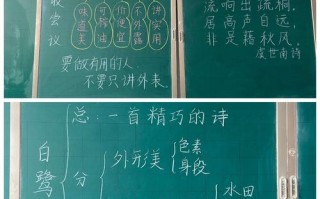 收会议
味道美
可榨油
价便宜
不外露
讲实用
要做有用的人
不要只讲外表.
流响出疏桐.
居高声自远,
非是藉秋风.
虞世南诗
总:一首精巧的诗
白鹭
分
外形美
色素
身段
水田